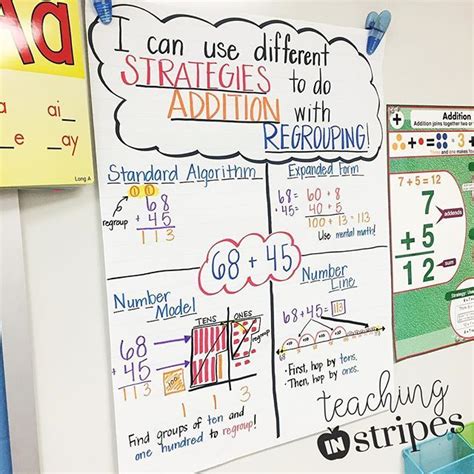 I can use different
STRATEGIES to do
ADDITION with
REGROUPING!
Standard Algorithm
1 1
68
+ 45
113
regroup
Expanded Form
68= 60 + 8
+45= 40 + 5
100 + 13 = 113
Use mental math!
68 + 45
Number Model
TENS ONES
68
+ 45
100
regroup
1 1 3
Find groups of ten and
one hundred to regroup!
Number Line
68+45= 113
68
• First, hop by tens.
• Then, hop by ones.
Aa
a ai_
e _ay
Long A
Addition
Addition joins together two or
7 + 5 = 12
7
+ 5
12
teaching
IN stripes